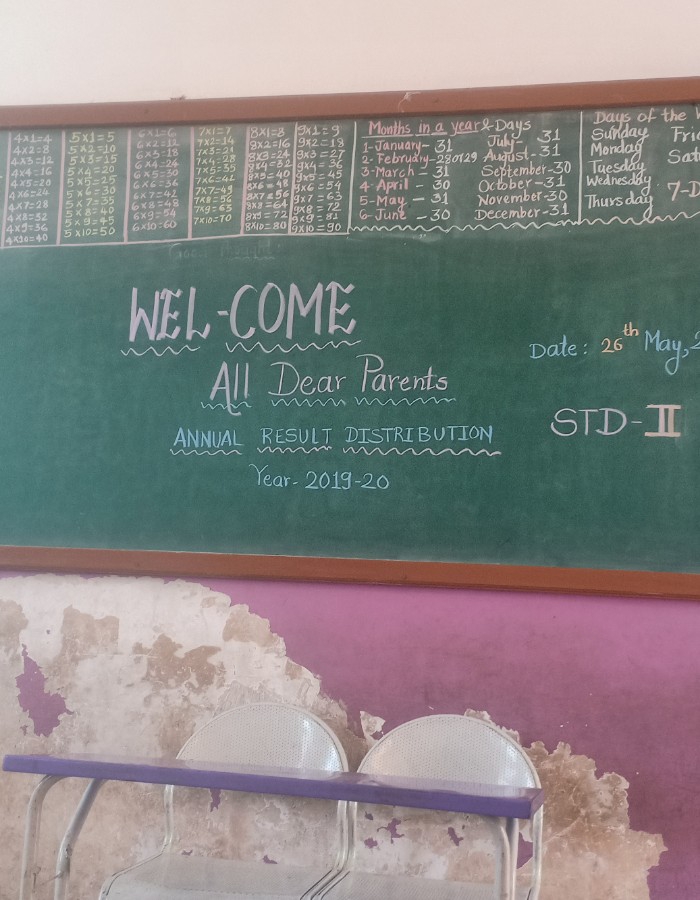 4×1=4
4×2=8
4×3=12
4×4=16
4×5=20
4×6=24
4×7=28
4×8=32
4×9=36
4×10=40
5×1=5
5×2=10
5×3=15
5×4=20
5×5=25
5×6=30
5×7=35
5×8=40
5×9=45
5×10=50
6×1=6
6×2=12
6×3=18
6×4=24
6×5=30
6×6=36
6×7=42
6×8=48
6×9=54
6×10=60
7×1=7
7×2=14
7×3=21
7×4=28
7×5=35
7×6=42
7×7=49
7×8=56
7×9=63
7×10=70
8×1=8
8×2=16
8×3=24
8×4=32
8×5=40
8×6=48
8×7=56
8×8=64
8×9=72
8×10=80
9×1=9
9×2=18
9×3=27
9×4=36
9×5=45
9×6=54
9×7=63
9×8=72
9×9=81
9×10=90
Months in a year & Days
1-January- 31
2-February-29
3-March - 31
4-April - 30
5-May - 31
6-June - 30
July- 31
August- 31
September-30
October-31
November-30
December-31
Days of the
Sunday
Monday
Tuesday
Wednesday
Thursday
7-D
WEL-COME
All Dear Parents
ANNUAL RESULT DISTRIBUTION
Year- 2019-20
Date: 26th May, 2
STD-II